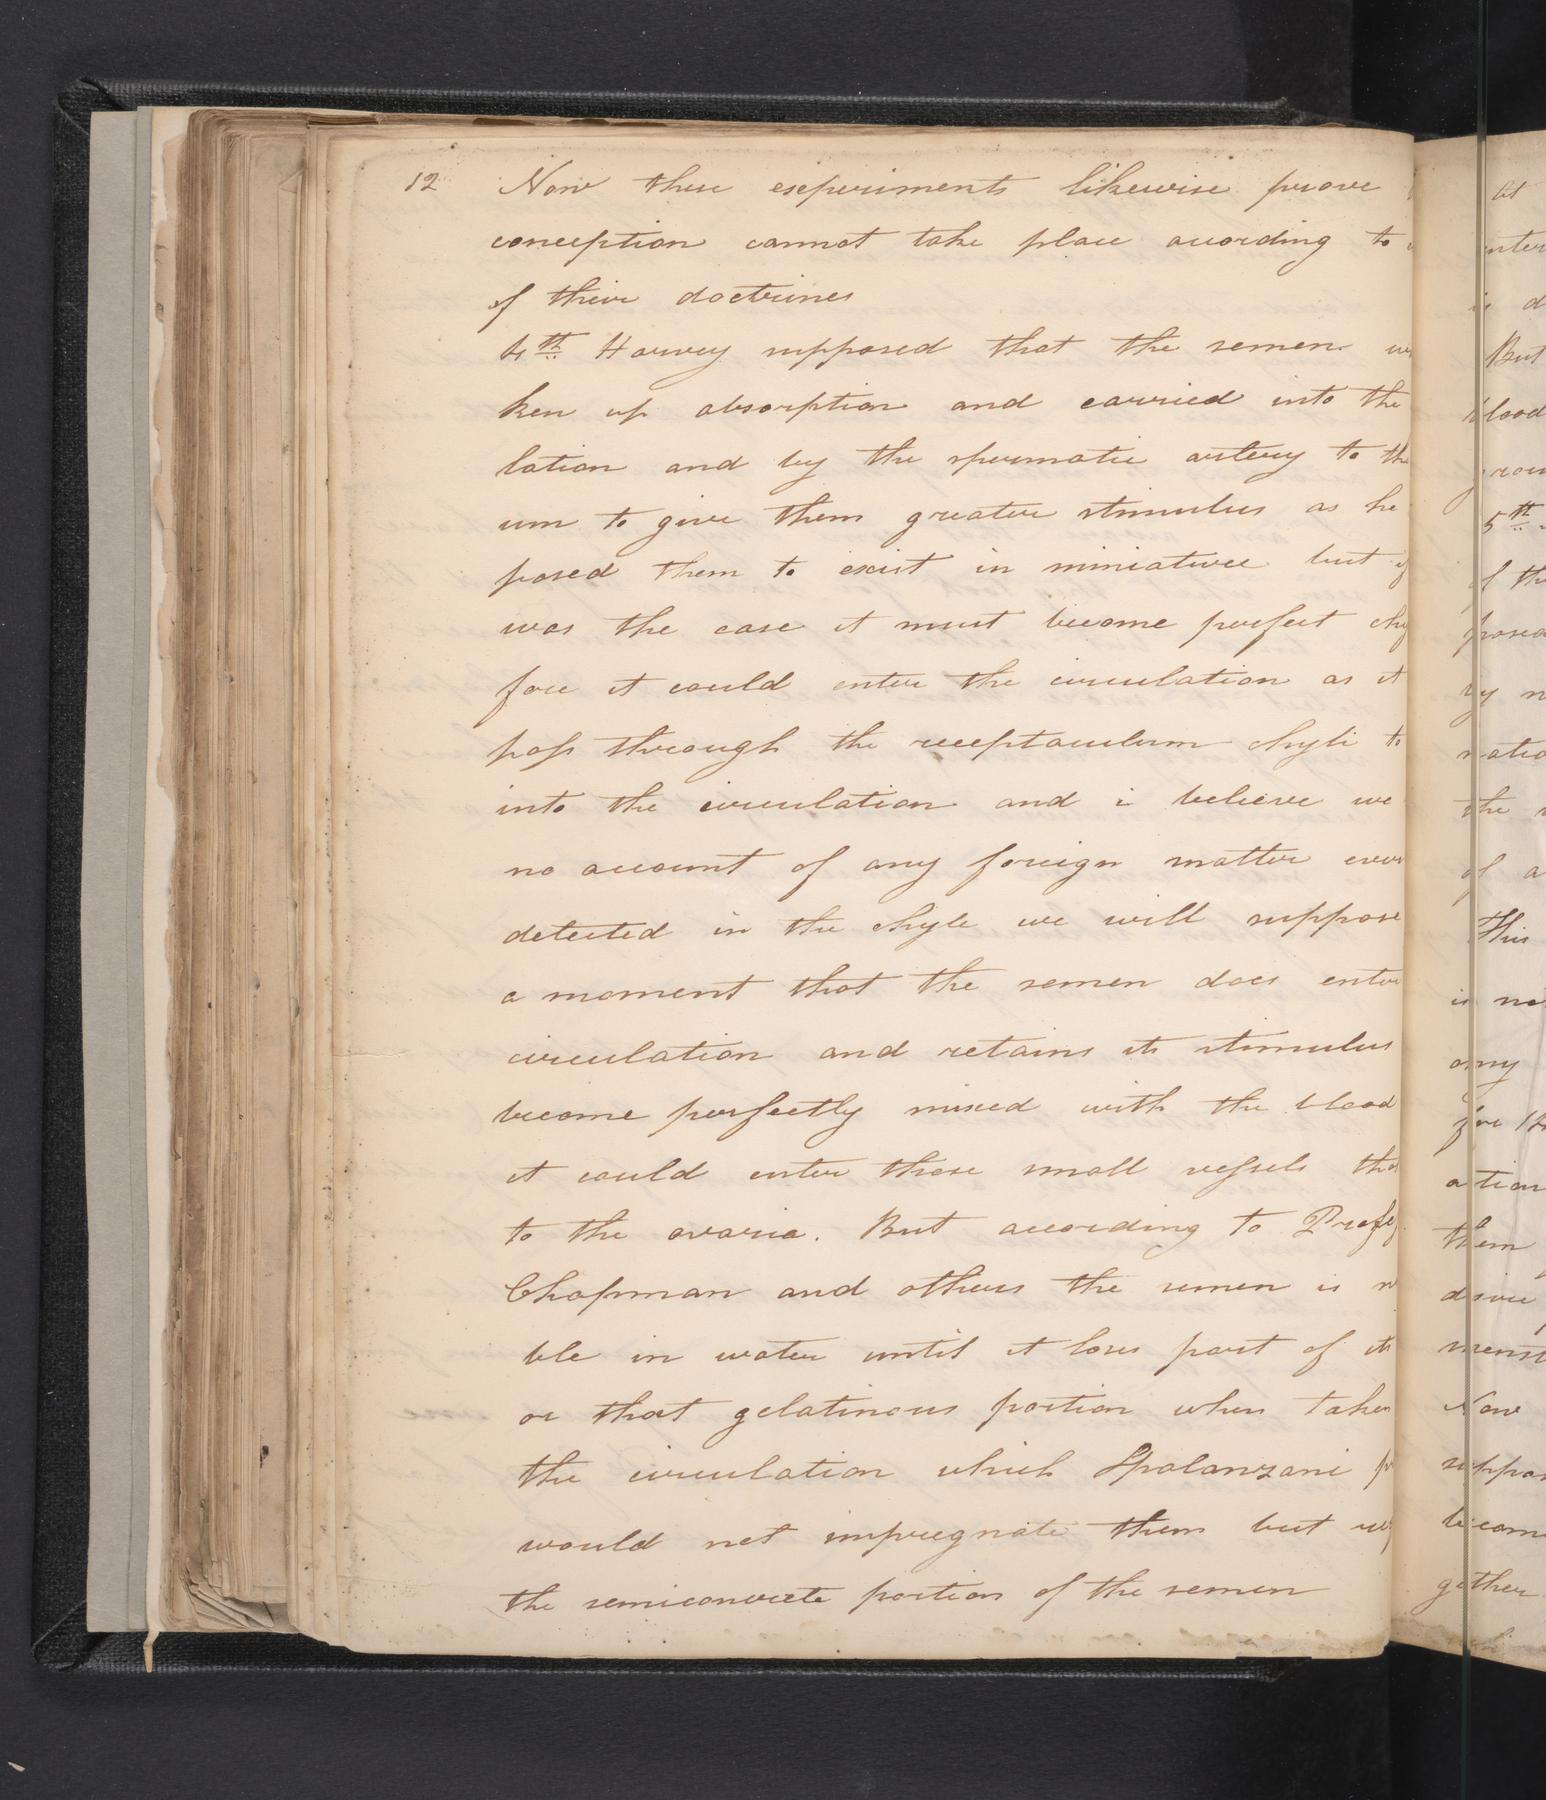 12 Now these experiments likewise prove
conception cannot take place acording to
of their doctrines
4th Harvey supposed that the semen
ken up absorption and carried into the
lation and by the spermatic artery to the
um to give them greater stimulus as he
posed them to exist in miniature but if
was the case it must become perfect chy
fore it could enter the circulation as it
pass through the receptaculum chyli to
into the circulation and i believe we
no account of any foreign matter ever
detected in the chyle we will suppose
a moment that the semen does enter
circulation and retains its stimulus
become perfectly mixed with the blood
it could enter those small vessels tha
to the ovaria. But acording to Profes
Chapman and others the semen is
ble in water until it loses part of its
or that gelatinous portion when taken
the circulation which Spalanzani
would not impregnate them but
the semiconcrete portion of the semen
at
enter
is d
But
blood
grou
5th
of th
posed
by n
natio
the
of a
This
is no
any
fore it
ation
them
mens
Now
suppos
becom
gether